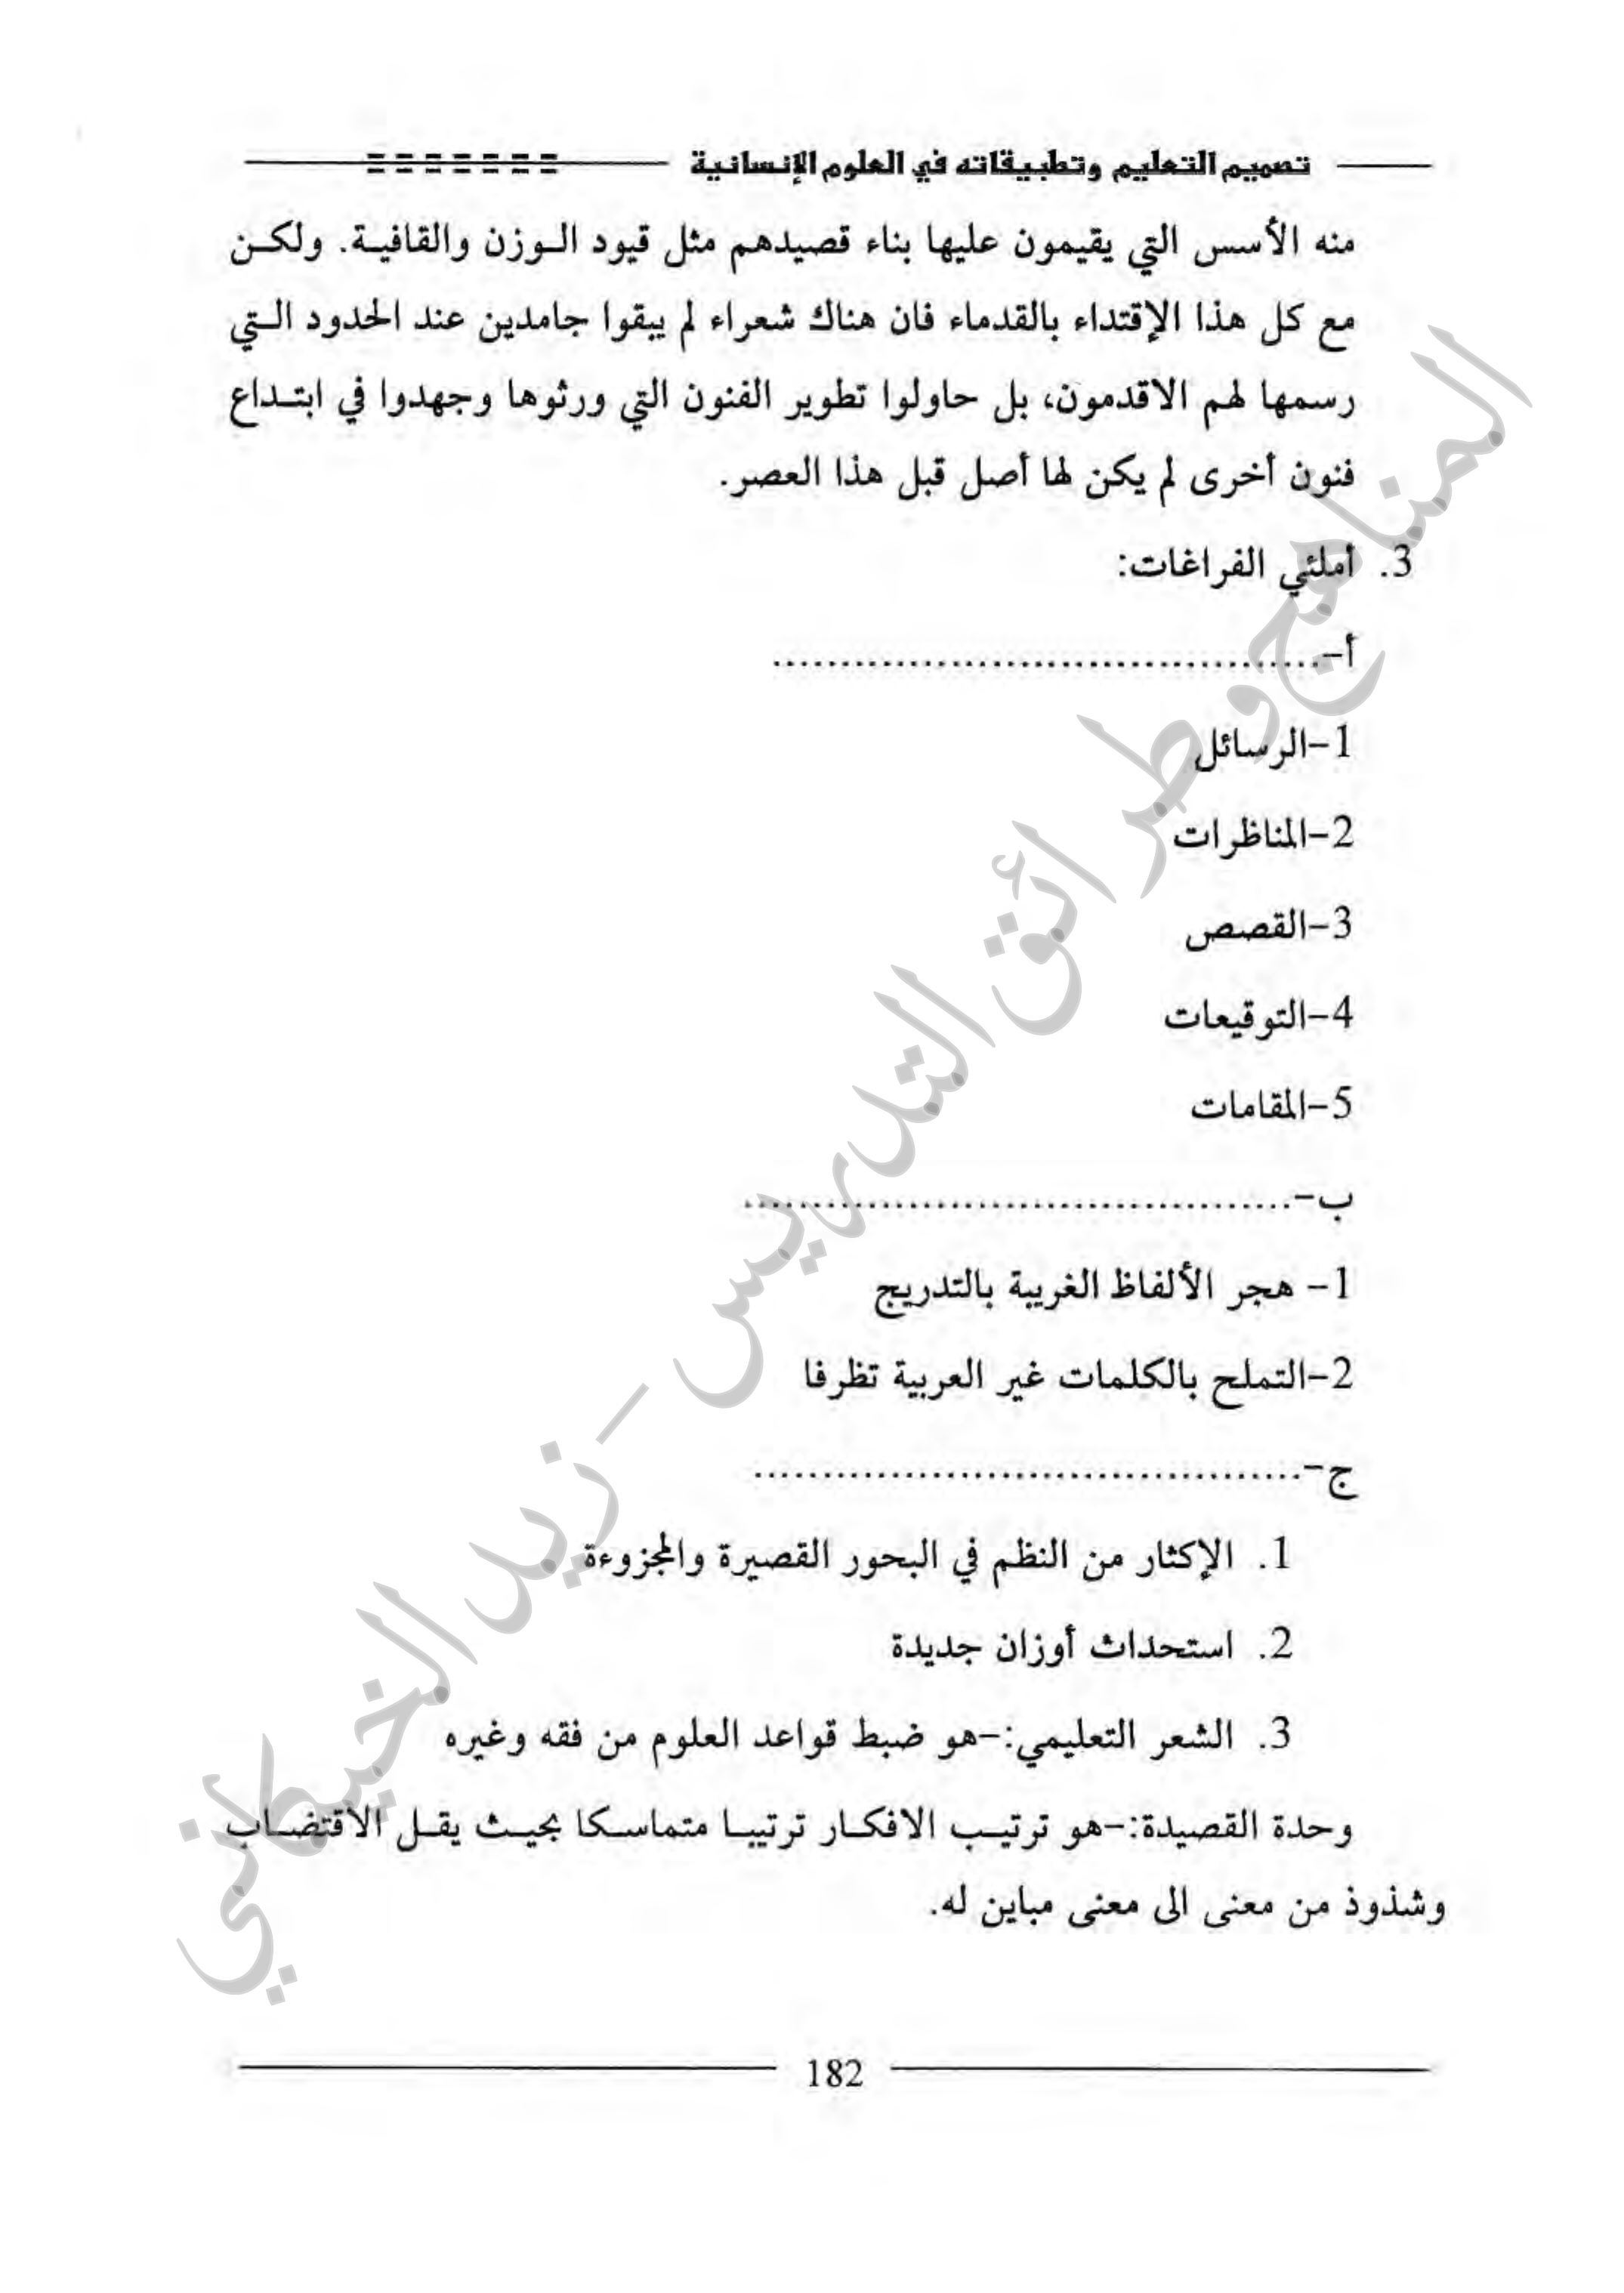 تصميم التعليم وتطبيقاته في العلوم الإنسانية
منه الأسس التي يقيمون عليها بناء قصيدهم مثل قيود الوزن والقافية. ولكن
مع كل هذا الإقتداء بالقدماء فان هناك شعراء لم يبقوا جامدين عند الحدود التي
رسمها لهم الاقدمون، بل حاولوا تطوير الفنون التي ورثوها وجهدوا في ابتداع
فنون أخرى لم يكن لها أصل قبل هذا العصر.
3. أملئي الفراغات:
أ-........................................
1-الرسائل
2-المناظرات
3-القصص
4-التوقيعات
5-المقامات
ب-........................................
1- هجر الألفاظ الغريبة بالتدريج
2-التملح بالكلمات غير العربية تظرفا
ج-........................................
1. الإكثار من النظم في البحور القصيرة والمجزوءة
2. استحداث أوزان جديدة
3. الشعر التعليمي:-هو ضبط قواعد العلوم من فقه وغيره
وحدة القصيدة:-هو ترتيب الافكار ترتيبا متماسكا بحيث يقل الاقتضاب
وشذوذ من معنى الى معنى مباين له.
182
المناهج وطرائق التدريس - زيد الخيكاني